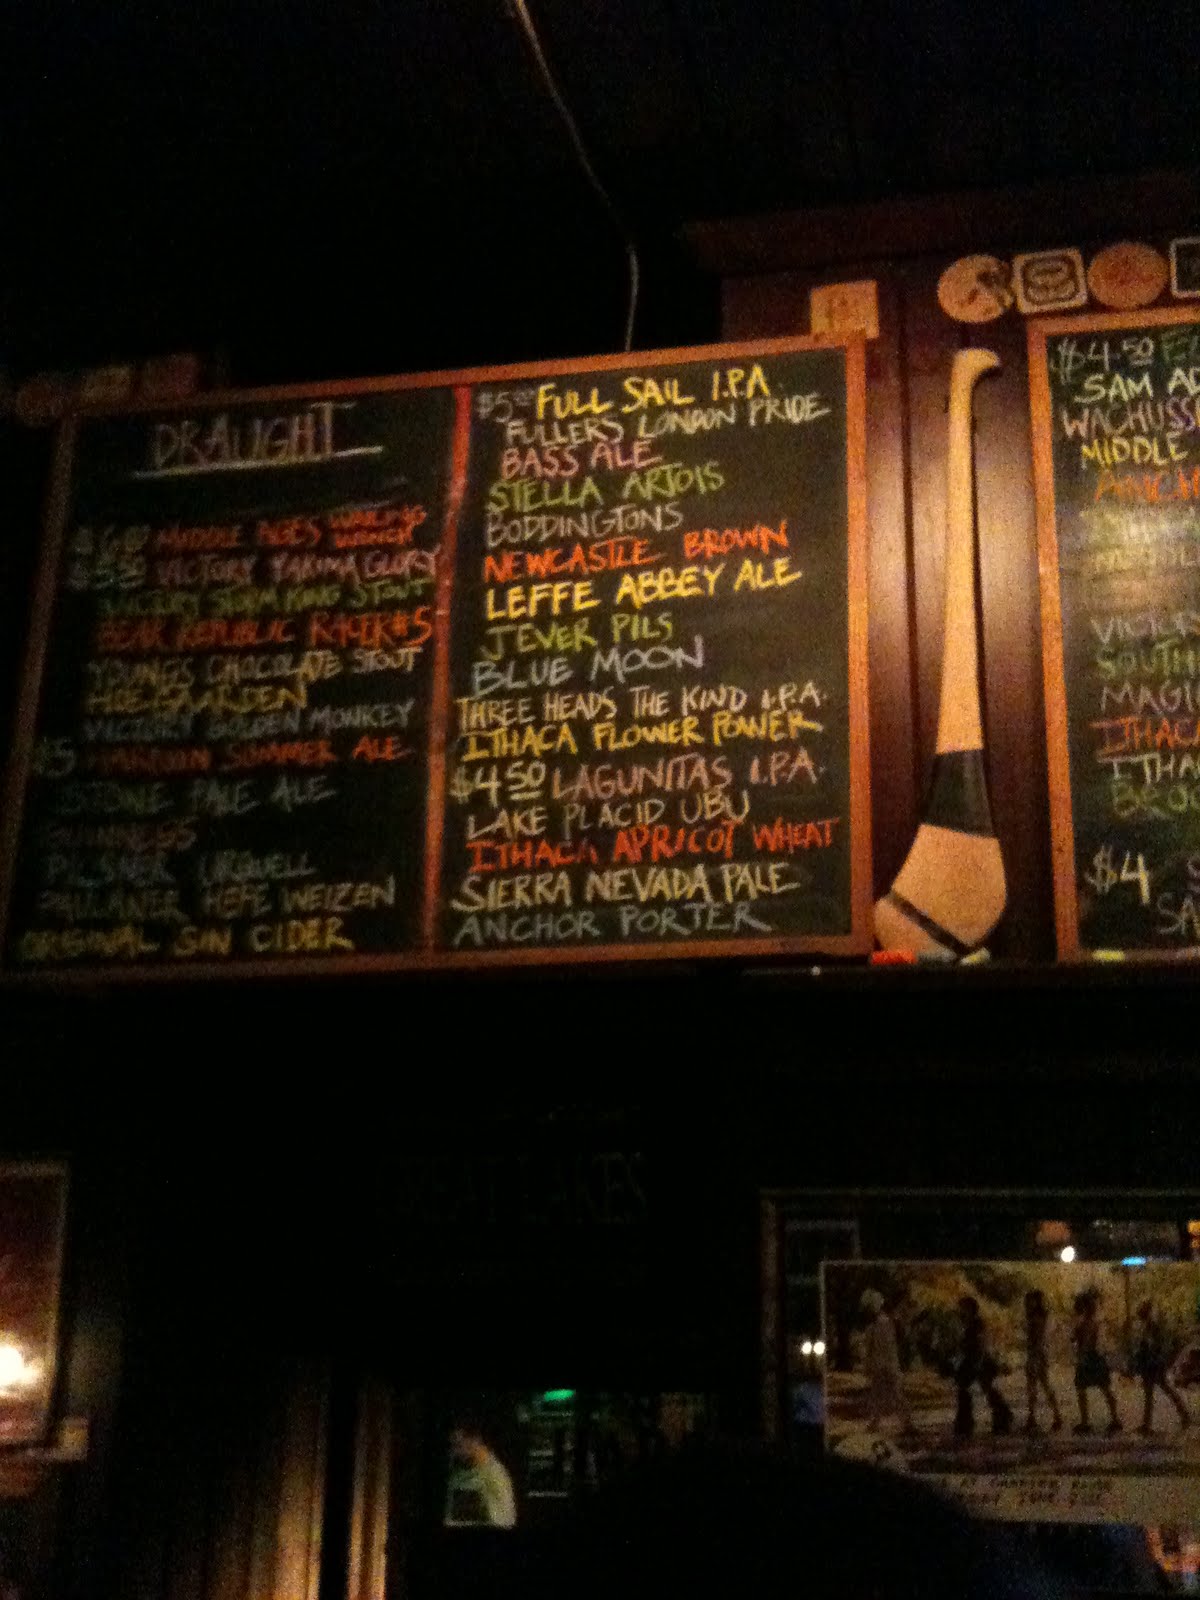 DRAUGHT
$6.00 MIDDLE AGES WAILING WENCH
$5.50 VICTORY YAKIMA GLORY
VICTORY STORM KING STOUT
BEAR REPUBLIC RACER #5
YOUNGS CHOCOLATE STOUT
HOEGAARDEN
VICTORY GOLDEN MONKEY
$5 SUMMER ALE
STONE PALE ALE
GUINNESS
PILSNER URQUELL
PAULANER HEFE WEIZEN
ORIGINAL SIN CIDER
$5.00 FULL SAIL I.P.A.
FULLERS LONDON PRIDE
BASS ALE
STELLA ARTOIS
BODDINGTONS
NEWCASTLE BROWN
LEFFE ABBEY ALE
JEVER PILS
BLUE MOON
THREE HEADS THE KIND I.P.A.
ITHACA FLOWER POWER
$4.50 LAGUNITAS I.P.A.
LAKE PLACID UBU
ITHACA APRICOT WHEAT
SIERRA NEVADA PALE
ANCHOR PORTER
$4.50
SAM AD
WACHUSS
MIDDLE
ANCH
VICTO
SOUTH
MAGI
ITHACA
ITHA
BRO
$4 S
SA
GREAT LAKES